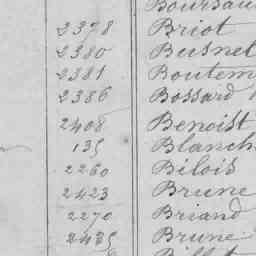 Boursau
2378 Briot
2380 Busnel
2381 Boutem
2386 Bossard
2408 Benoist
135 Blanch
2260 Bélois
2423 Brune
2270 Briand
2435 Brune